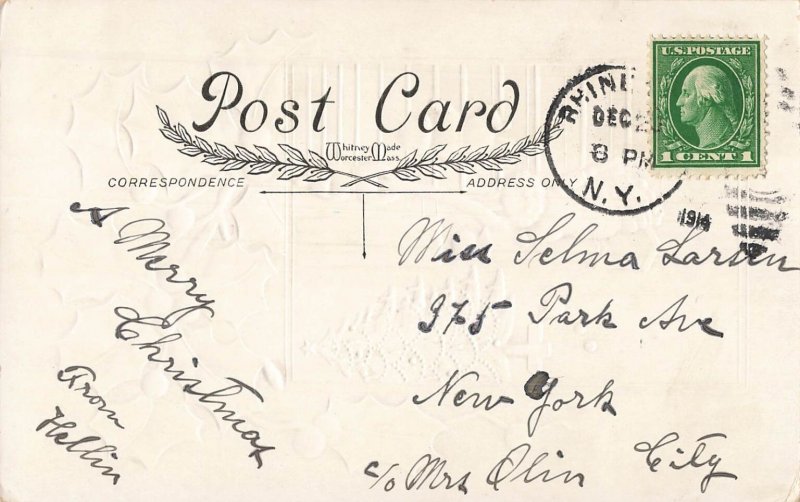 U.S. POSTAGE
1 CENT 1
Post Card
Whitney Made
Worcester Mass.
CORRESPONDENCE
ADDRESS ONLY
DEC
8 PM
N.Y.
1914
A Merry
Christmas
From
Hellin
Miss Selma Larsen
975 Park Ave
New York
City
c/o Mrs Olin